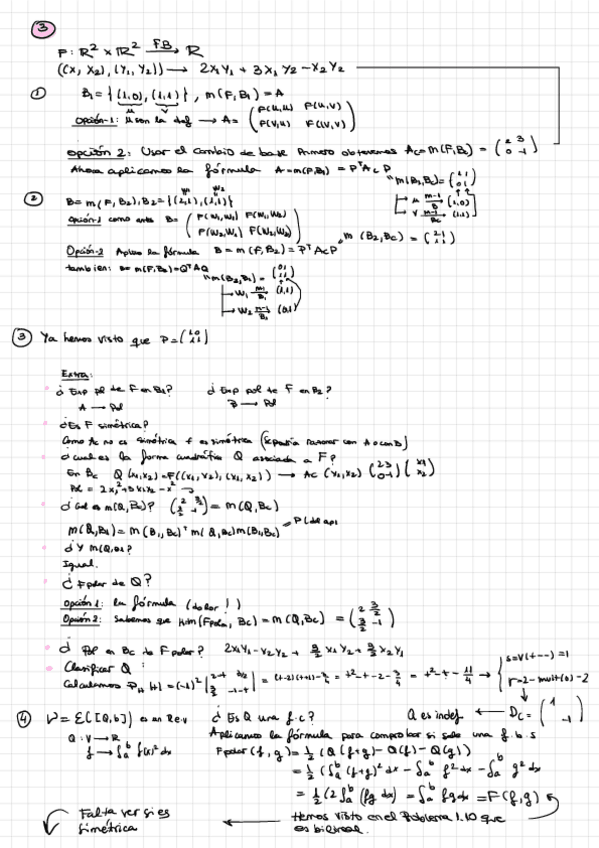 3
F: R² × R² —FB→ R
((X, X2), (Y1, Y2)) → 2X1Y1 + 3X1Y2 - X2Y2
① B1 = {(1,0), (1,1)}, m(F,B1) = A
u v
Opción-1: usan la def → A = ( F(u,u) F(u,v)
F(v,u) F(v,v) )
opción 2: Usar el cambio de base Primero obtenemos Ac = m(F,Bc) = ( 2 3
0 -1 )
Ahora aplicamos la fórmula A = m(F,B1) = PᵀAcP
"m(B1,Bc) = ( 1 1
0 1 )
u (1,0)
v (1,1)
W1 W2
② B = m(F,B2), B2 = {(2,1), (1,1)}
opción-1 como antes B = ( F(W1,W1) F(W1,W2)
F(W2,W1) F(W2,W2) )
Opción-2 Aplico la fórmula B = m(F,B2) = PᵀAcP
m(B2,Bc) = ( 2 1
1 1 )
también: B = m(F,B2) = QᵀAQ
"m(B2,B1) =
W1 (1,1)
W2 (0,1)
③ Ya hemos visto que P =
Extra:
¿Exp pol de F en B1? ¿Exp pol de F en B2?
A → Pol B → Pol
¿Es F simétrica?
Como Ac no es simétrica F es simétrica (Se podría razonar con A o con B)
¿cual es la forma cuadrática Q asociada a F?
En Bc Q(X1,X2) = F((X1,X2), (X1,X2)) → Ac (X1,X2) ( 2 3
0 -1 ) ( X1
X2 )
¿Cual es m(Q,Bc)? = m(Q,Bc)
m(Q,B1) = m(B1,Bc)ᵀ m(Q,Bc) m(B1,Bc)
¿Y m(Q,B2)?
Igual.
¿Fpolar de Q?
Opción 1: la fórmula (dolor!)
Opción 2: Sabemos que m(Fpolar, Bc) = m(Q,Bc) = ( 2 3/2
3/2 -1 )
¿Pol en Bc de Fpolar? 2X1Y1 - X2Y2 + 3/2 X1Y2 + 3/2 X2Y1
Clasificar Q:
Calculamos = (t-2)(t+1) - = t² + -t - 2 - = t² - t - → s = v(+--) = 1
r = 2 - mult(0) = 2
④ V = E([a,b]) es un R e.v ¿Es Q una f.c? Q es indef ← Dc = ( 1
-1 )
Q: V → R Aplicamos la fórmula para comprobar si sale una f.b.s
f → ∫ₐᵇ f(x)² dx Fpolar(f,g) = ½ (Q(f+g) - Q(f) - Q(g))
= ½ (∫ₐᵇ (f+g)² dx - ∫ₐᵇ f² dx - ∫ₐᵇ g² dx
= ½ (2∫ₐᵇ (fg dx) = ∫ₐᵇ fg dx = F(f,g)
Falta ver si es simétrica ← Hemos visto en el Problema 1.10 que
es bilineal.